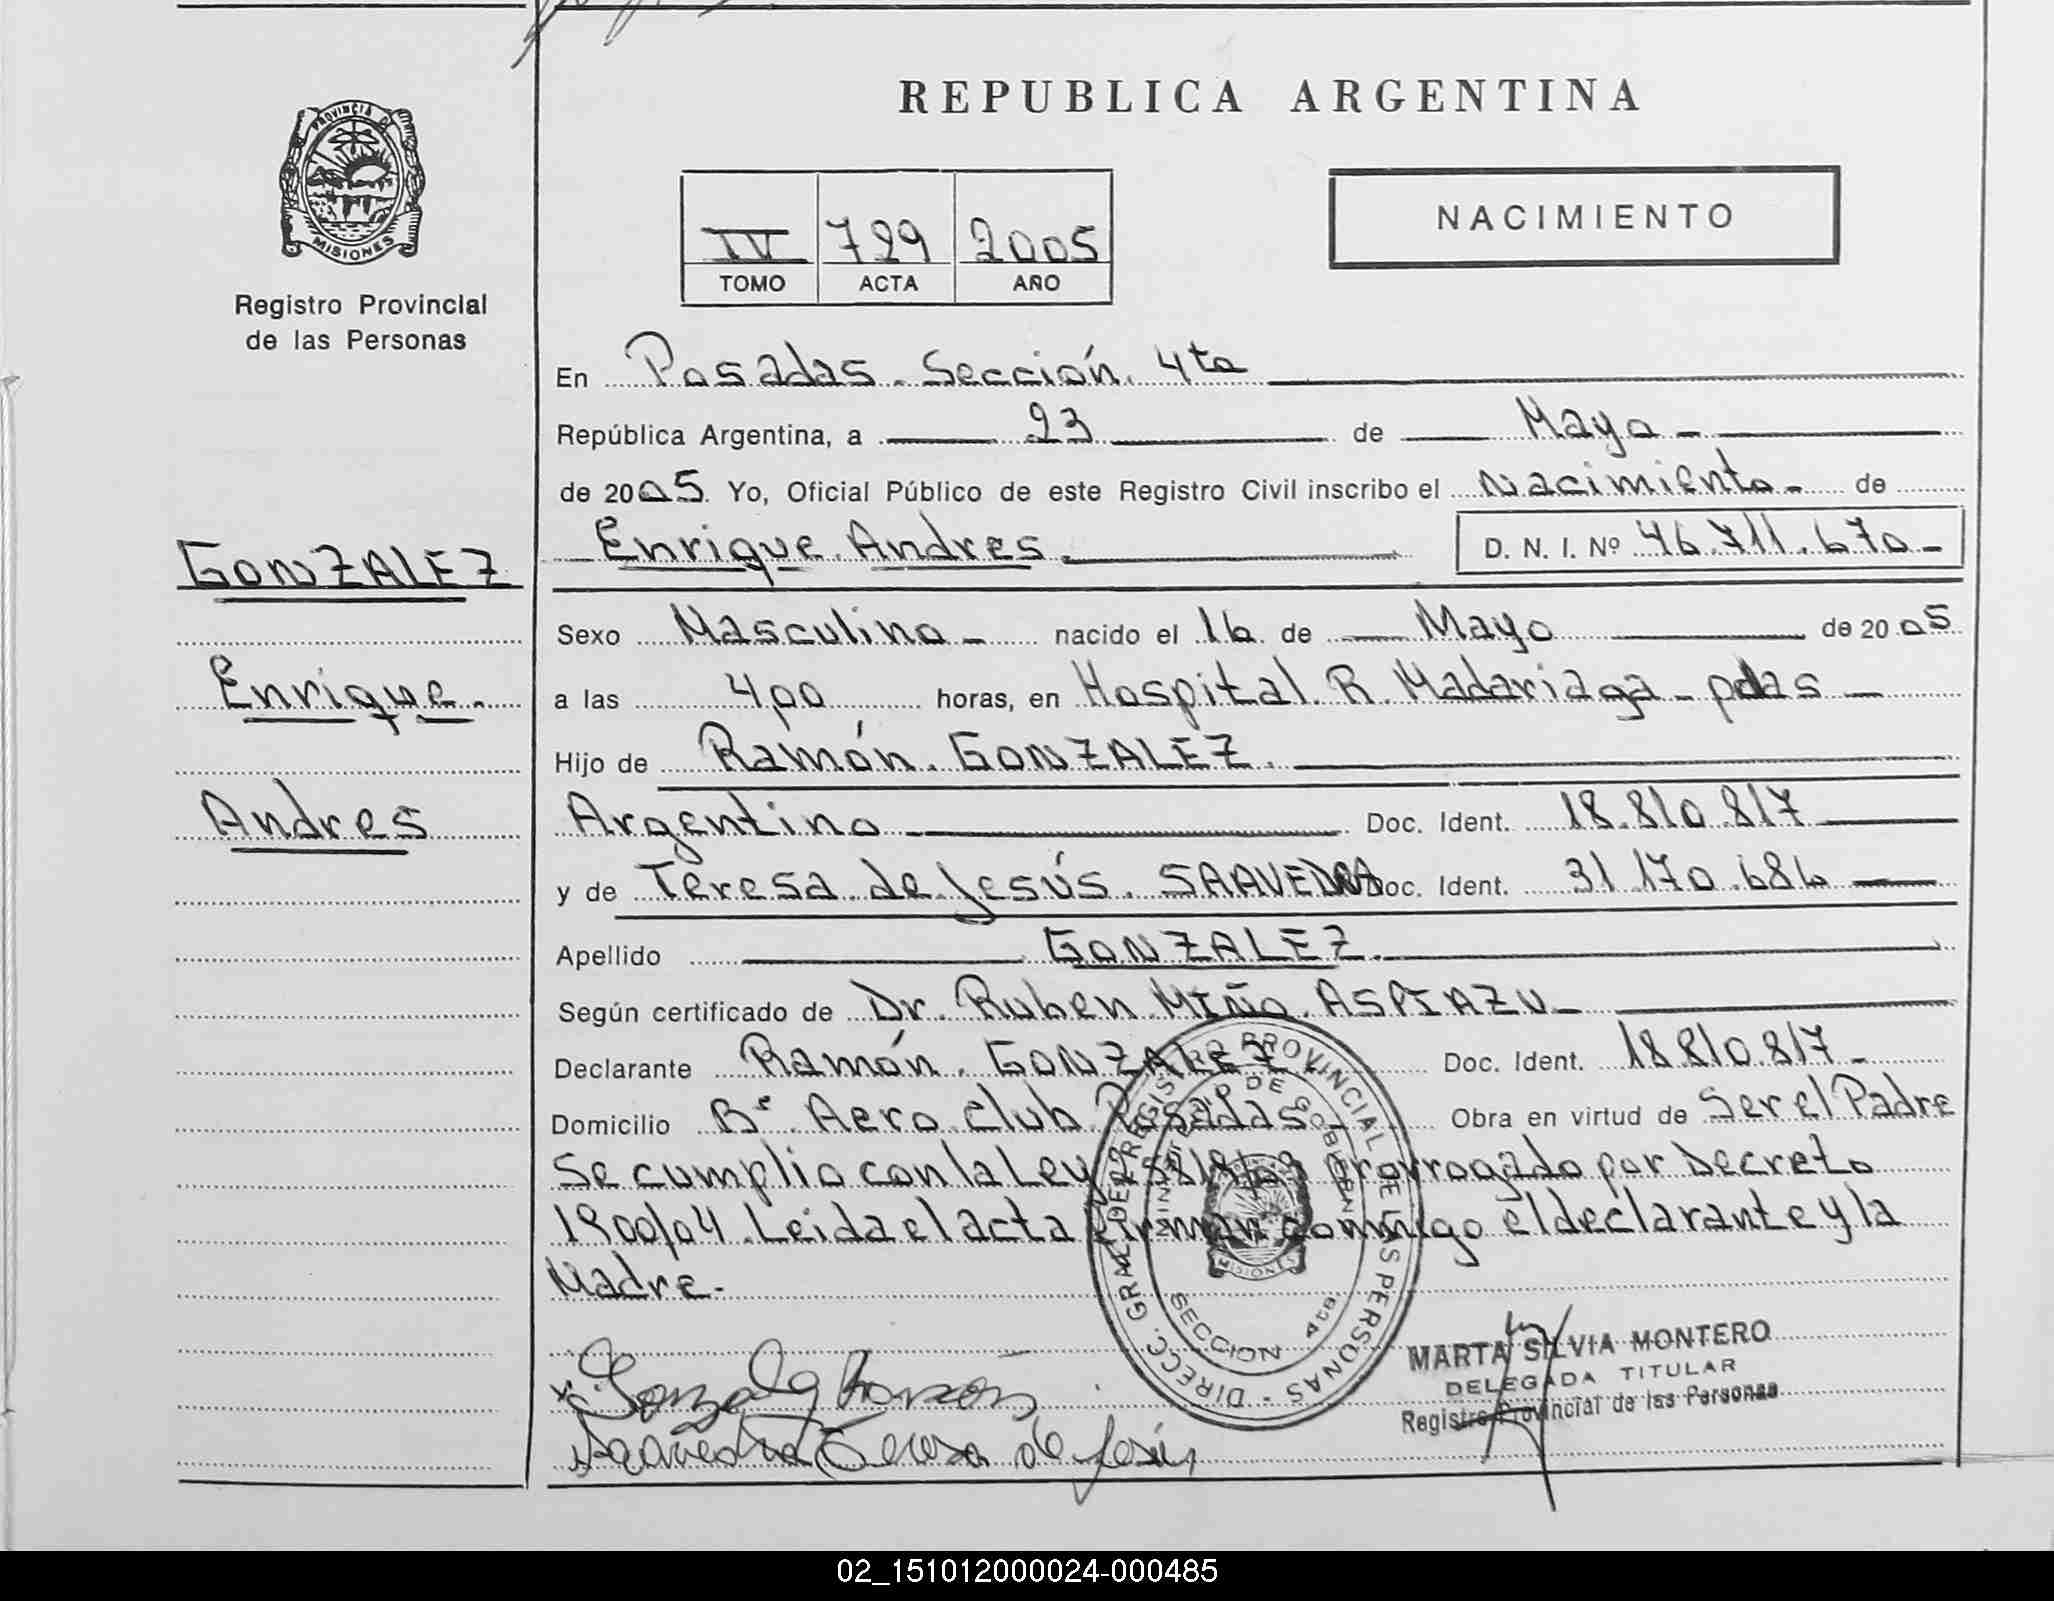 REPUBLICA ARGENTINA
PROVINCIA DE
MISIONES
Registro Provincial
de las Personas
IV 729 2005
TOMO ACTA AÑO
NACIMIENTO
En Posadas. Sección. 4ta
República Argentina, a 23 de Mayo
de 2005. Yo, Oficial Público de este Registro Civil inscribo el Nacimiento de
Enrique Andres. D. N. I. Nº 46.711.670
GONZALEZ
Enrique.
Andres
Sexo Masculino nacido el 16 de Mayo de 2005
a las 4,00 horas, en Hospital R. Madariaga - pdas
Hijo de Ramón. GONZALEZ.
Argentino Doc. Ident. 18.810.817
y de Teresa de Jesús. SAAVEDRA Doc. Ident. 31.170.686
Apellido GONZALEZ.
Según certificado de Dr. Ruben Miño. ASPIAZU
Declarante Ramón. GONZALEZ Doc. Ident. 18.810.817
Domicilio Bº Aero Club Posadas Obra en virtud de Ser el Padre
Se cumplio con la Ley prorrogado por Decreto
1900/04. Leida el acta firman conmigo el declarante y la
Madre.
DIRECC. GRAL DE REGISTRO PROVINCIAL DE LAS PERSONAS
MINISTERIO DE GOBIERNO
MISIONES
SECCION 4ta
Gonzalez Ramon
Saavedra Teresa de Jesús
MARTA SILVIA MONTERO
DELEGADA TITULAR
Registro Provincial de las Personas
02_151012000024-000485